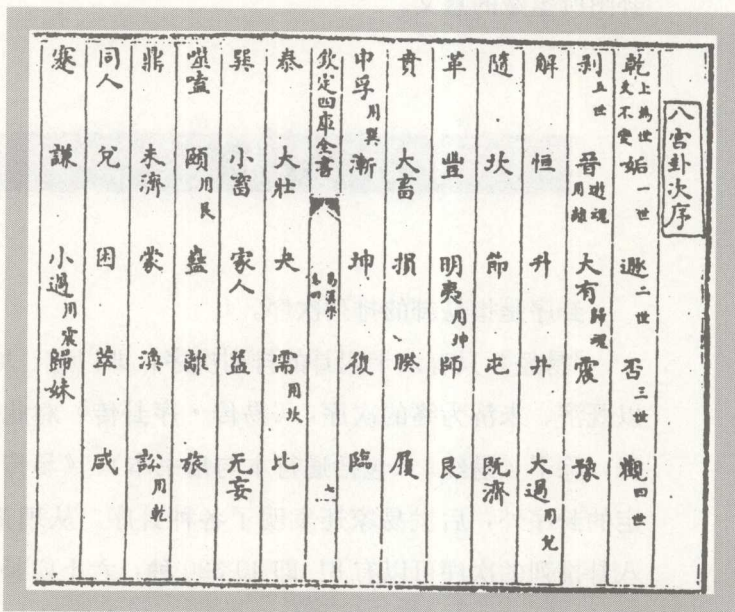 八宮卦次序
乾上為世爻不變 姤一世 遯二世 否三世 觀四世
剥五世 晉遊魂用離 大有歸魂 震 豫
解 恒 升 井 大過用兌
隨 坎 節 屯 既濟
革 豐 明夷用坤 師 艮
賁 大畜 損 睽 履
中孚用巽 漸 坤 復 臨
欽定四庫全書 易漢學
泰 大壯 夬 需用坎 比
巽 小畜 家人 益 无妄
噬嗑 頤用艮 蠱 離 旅
鼎 未濟 蒙 渙 訟用乾
同人 兌 困 萃 咸
蹇 謙 小過用震 歸妹